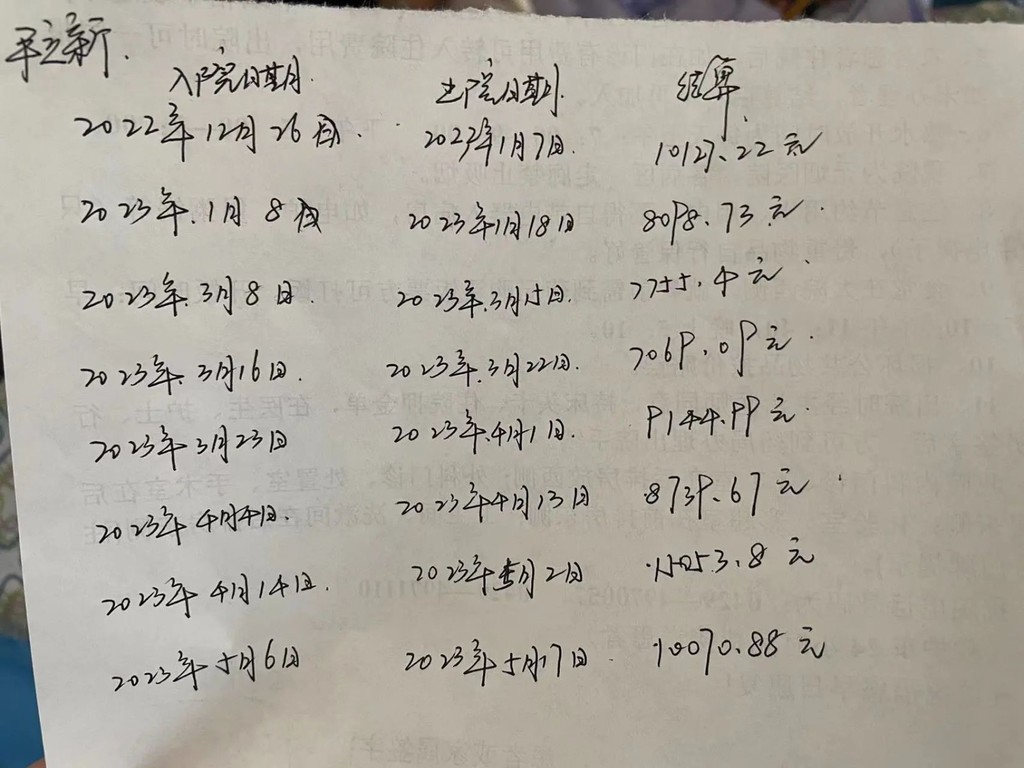 入院日期 出院日期 结算
2022年12月26日. 2023年1月7日. 10127.22元
2023年.1月8日 2023年1月18日 8098.73元.
2023年.3月8日. 2023年.3月15日. 7755.4元.
2023年.3月16日. 2023年.3月22日. 7069.09元.
2023年3月23日 2023年.4月1日. 9144.99元.
2023年4月4日. 2023年4月13日 8739.67元.
2023年4月14日. 2023年5月2日 15053.8元
2023年5月6日 2023年5月17日. 10070.88元